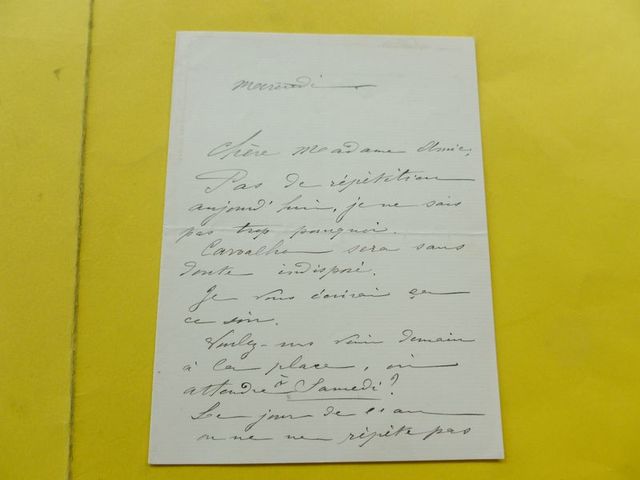 mercredi
Chère Madame Amie,
Pas de répétition
aujourd'hui, je ne sais
pas trop pourquoi.
Carvalho sera sans
doute indisposé.
Je vous écrirai ça
ce soir.
Voulez-vous venir demain
à la place, ou
attendre à Samedi?
Le jour de l'an
on ne répète pas